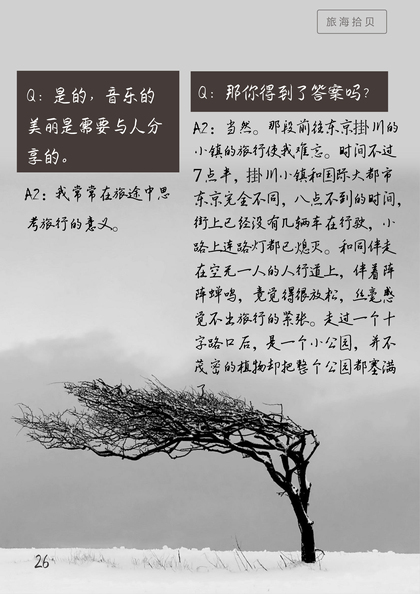 旅海拾贝
Q：是的，音乐的
美丽是需要与人分
享的。
A2：我常常在旅途中思
考旅行的意义。
Q：那你得到了答案吗？
A2：当然。那段前往东京掛川的
小镇的旅行使我难忘。时间不过
7点半，掛川小镇和国际大都市
东京完全不同，八点不到的时间，
街上已经没有几辆车在行驶，小
路上连路灯都已熄灭。和同伴走
在空无一人的人行道上，伴着阵
阵蝉鸣，竟觉得很放松，丝毫感
觉不出旅行的紧张。走过一个十
字路口后，是一个小公园，并不
茂密的植物却把整个公园都塞满
了
26